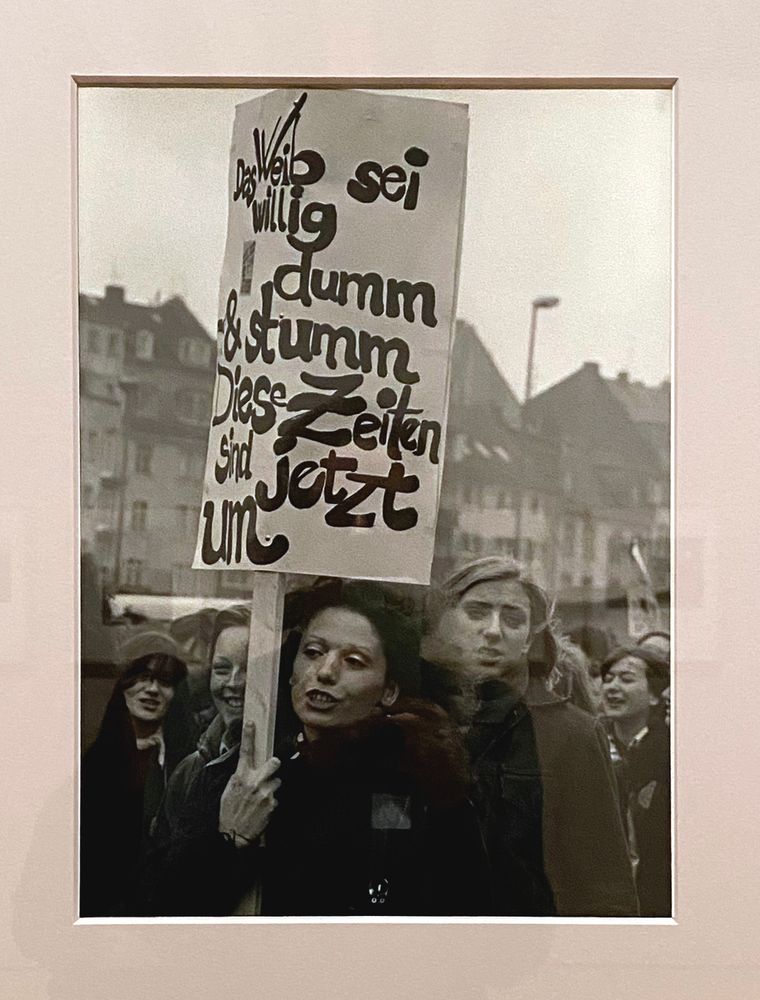 Das Weib sei
willig
dumm
& stumm
Diese Zeiten
sind jetzt
um